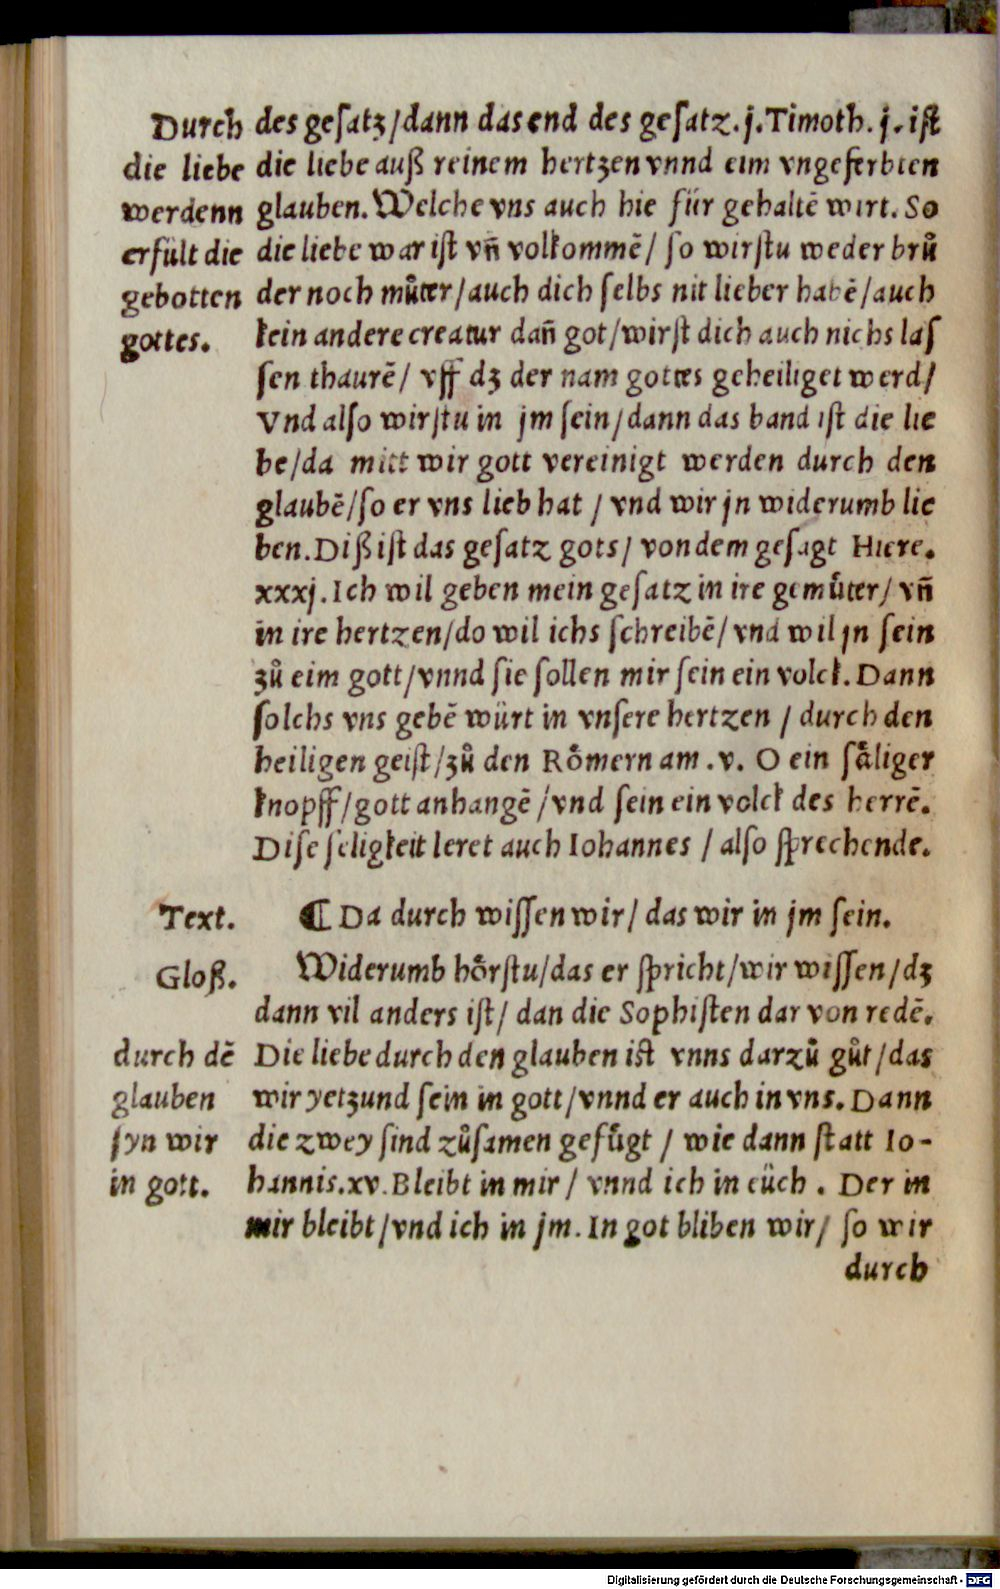 Durch
die liebe
werdenn
erfült die
gebotten
gottes.
des geſatʒ/dann das end des geſatz.j.Timoth.j.iſt
die liebe auß reinem hertʒen vnnd eim vngeferbten
glauben.Welche vns auch hie für gehaltē wirt.So
die liebe war iſt vn̄ volkommē/ ſo wirſtu weder brů
der noch můter/auch dich ſelbs nit lieber habē/auch
kein andere creatur dan̄ got/wirſt dich auch nichs laſ
ſen thaurē/ vff dʒ der nam gottes geheiliget werd/
Vnd alſo wirſtu in jm ſein/dann das band iſt die lie
be/da mitt wir gott vereinigt werden durch den
glaubē/ſo er vns lieb hat / vnd wir jn widerumb lie
ben.Diß iſt das geſatz gots/ von dem geſagt Hiere.
xxxj.Ich wil geben mein geſatz in ire gemůter/ vn̄
in ire hertzen/do wil ichs ſchreibē/ vnd wil jn ſein
ʒů eim gott/vnnd ſie ſollen mir ſein ein volck.Dann
ſolchs vns gebē würt in vnſere hertzen / durch den
heiligen geiſt/ʒů den Roͤmern am .v. O ein ſaͤliger
knopff/gott anhangē/vnd ſein ein volck des herrē.
Diſe ſeligkeit leret auch Iohannes / alſo ſprechende.
Text.
¶ Da durch wiſſen wir/ das wir in jm ſein.
Gloß.
Widerumb hoͤrſtu/das er ſpricht/wir wiſſen/dʒ
dann vil anders iſt/ dan die Sophiſten dar von redē.
durch dē
glauben
ſyn wir
in gott.
Die liebe durch den glauben iſt vnns darzů gůt/das
wir yetʒund ſein in gott/vnnd er auch in vns.Dann
die zwey ſind zůſamen gefůgt / wie dann ſtatt Io-
hannis.xv.Bleibt in mir/ vnnd ich in eüch . Der in
mir bleibt/vnd ich in jm.In got bliben wir/ ſo wir
durch
Digitalisierung gefördert durch die Deutsche Forschungsgemeinschaft - DFG